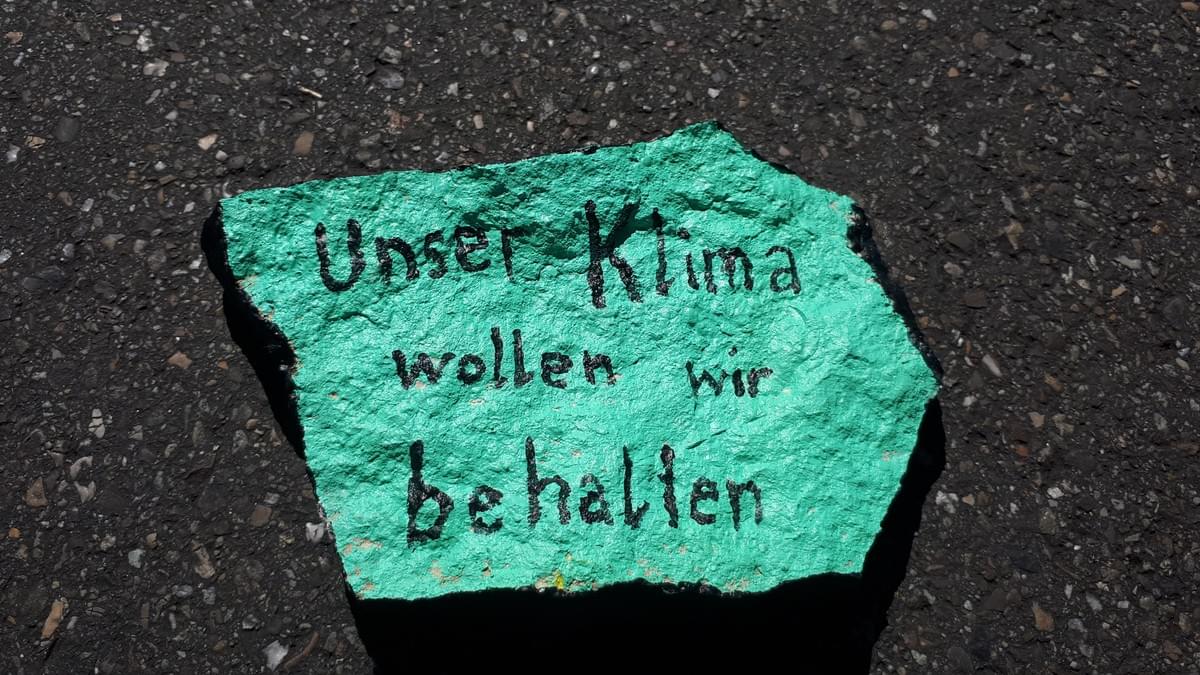 Unser Klima
wollen wir
behalten